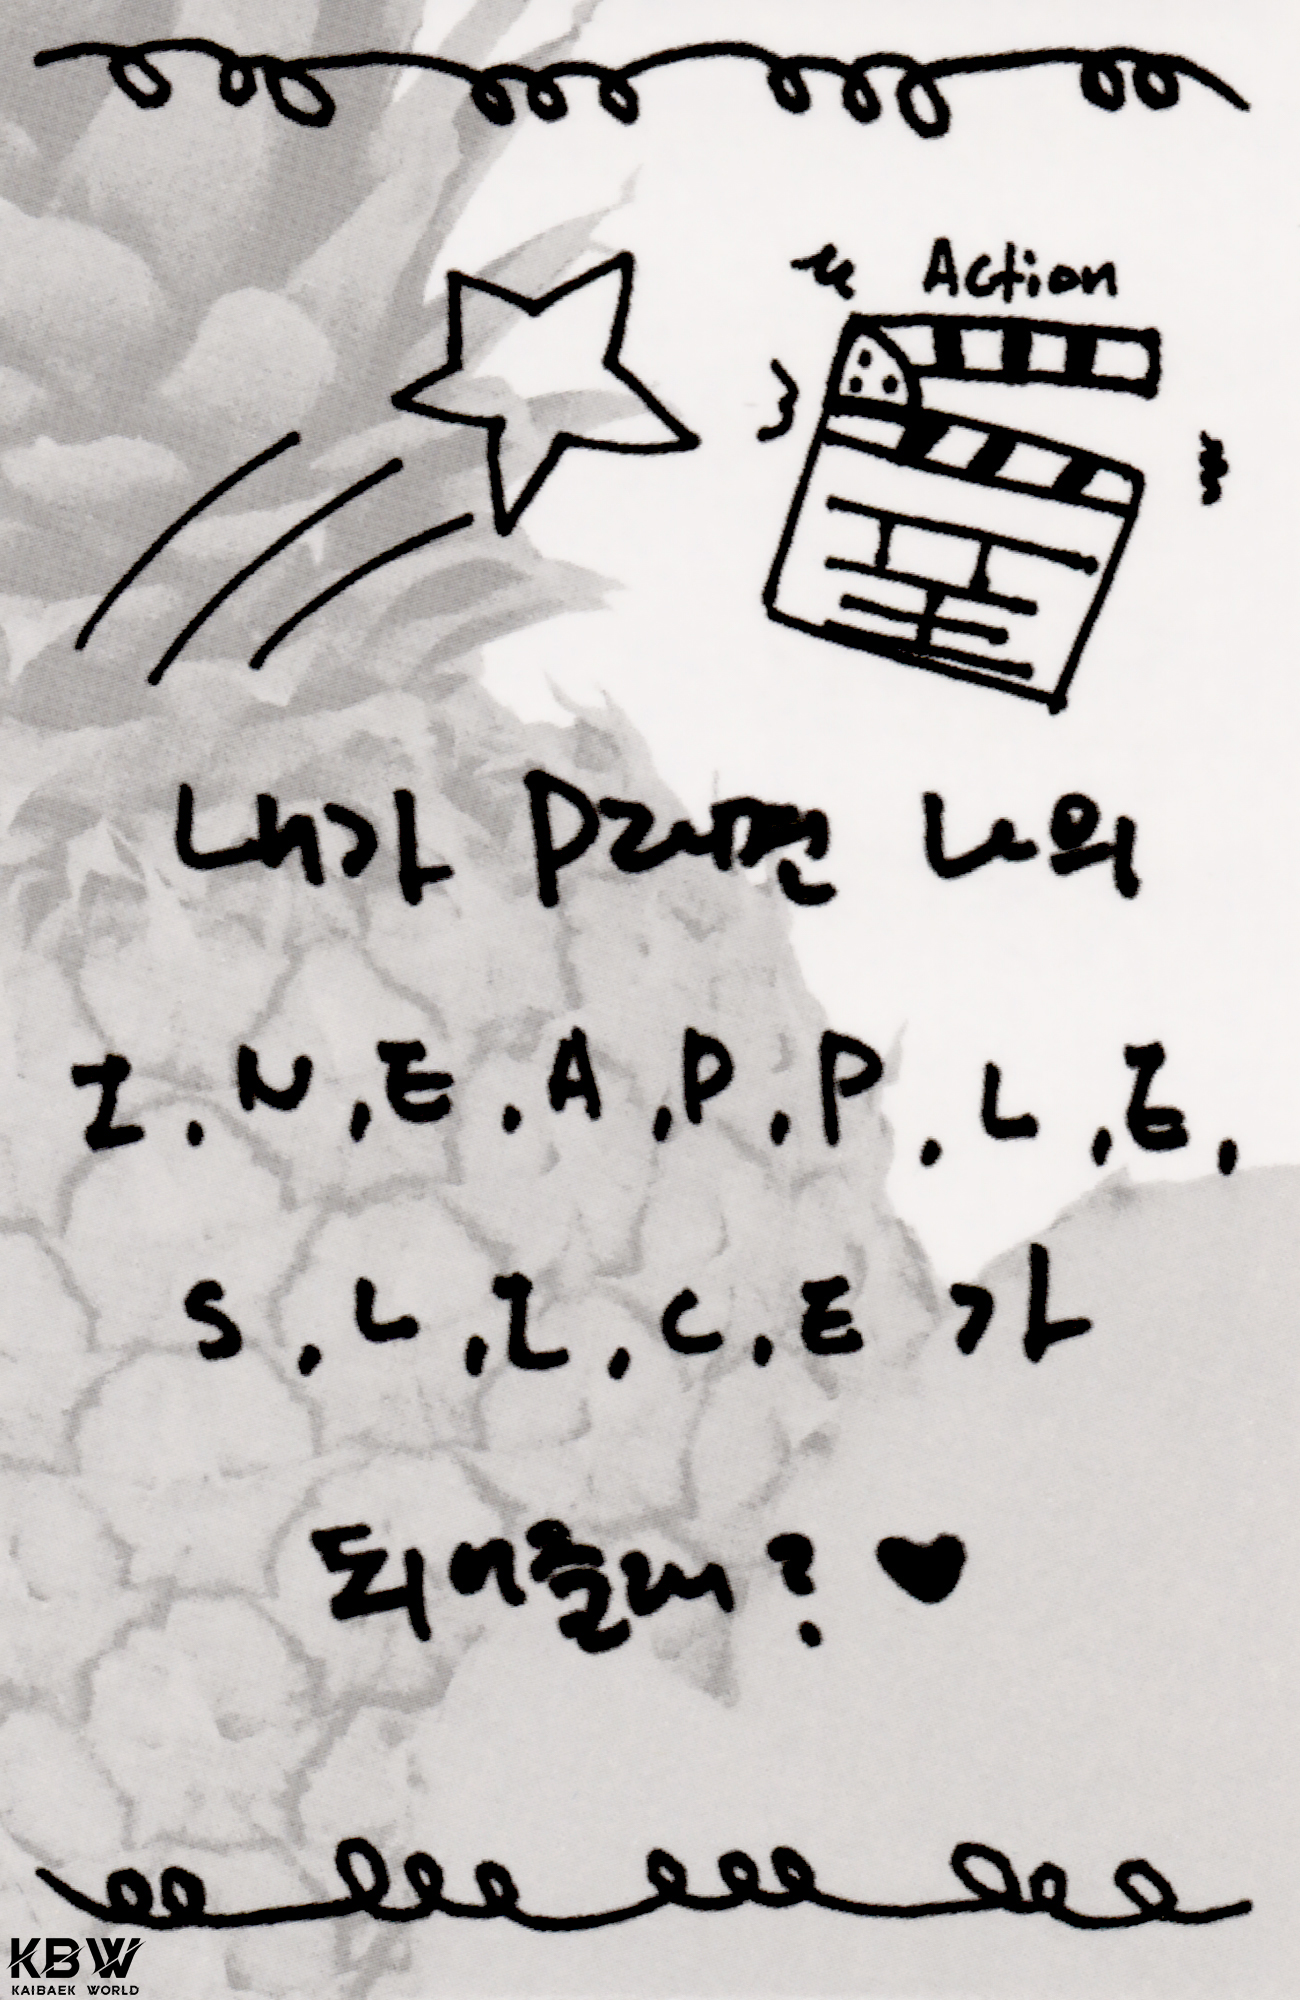 Action
내가 P라면 나의
I.N.E.A.P.P.L.E.
S.L.I.C.E가
되어줄래? ♥
KBW
KAIBAEK WORLD